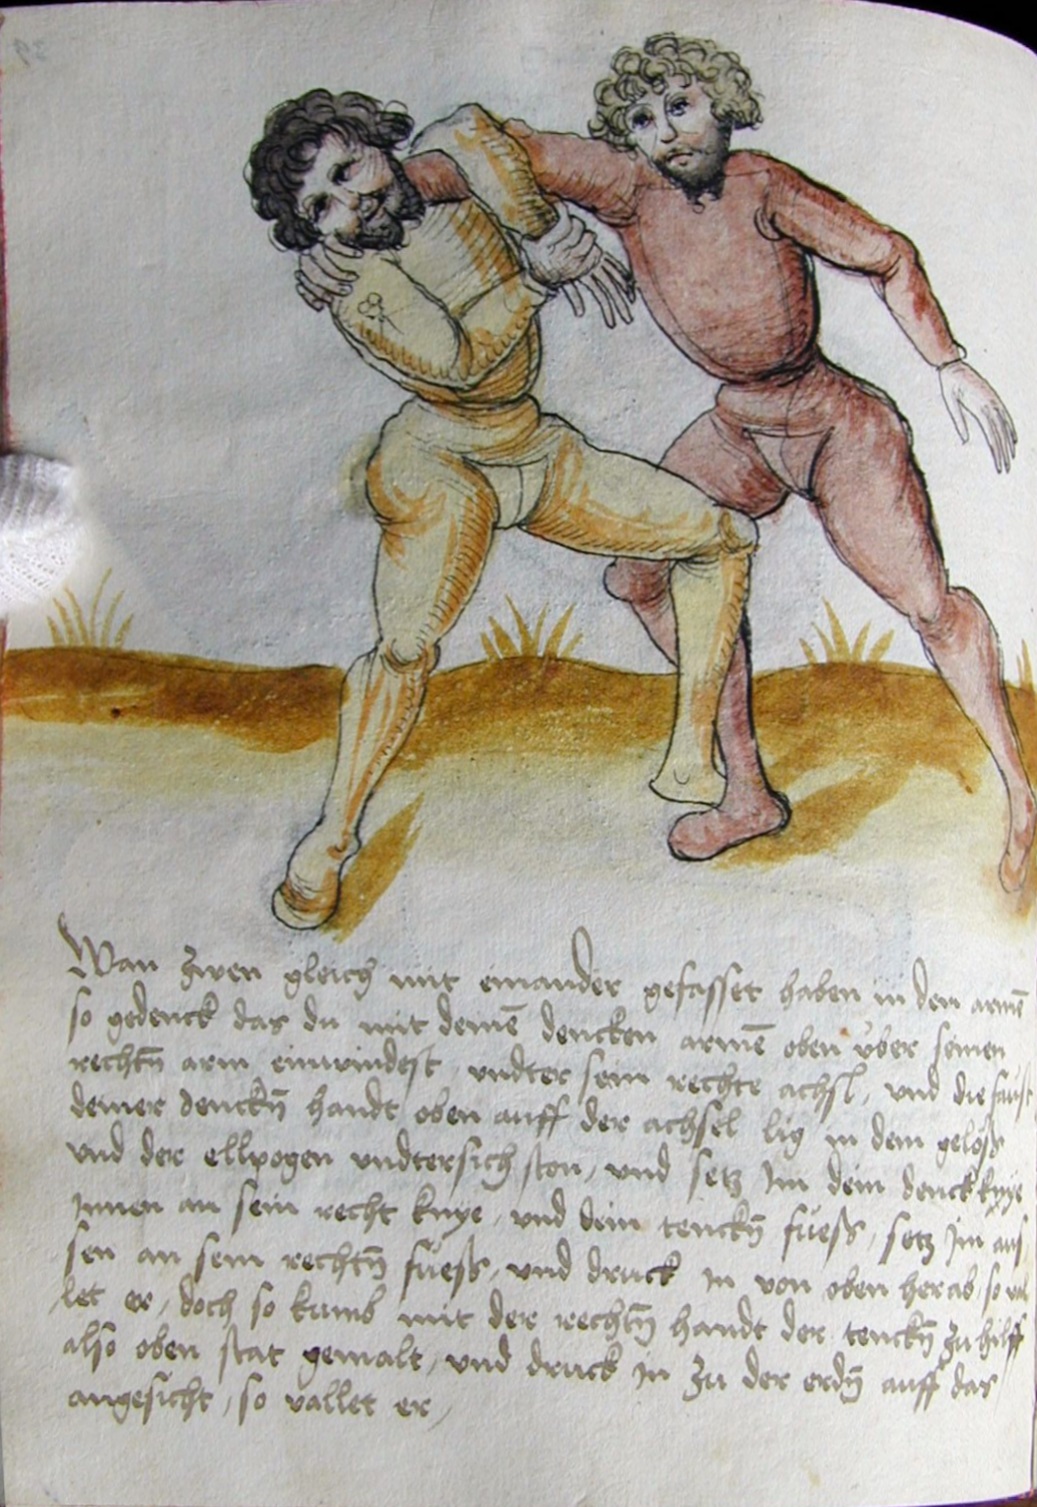 Wan zwen gleich mit einander gefasset haben in den armē
so gedenck das du mit deinē dencken armē oben vber seinen
rechtn̄ arm einwindest, vndter sein rechte achsl, vnd die faust
deiner denckn̄ handt oben auff der achsel lig in dem gelöß
vnd der ellpogen vndtersich ston, vnd setz Im dein denck knye
Innen an sein recht knye, vnd dein tenckn̄ fueß, setz Im aus
sen an sein rechtn̄ fueß, vnd druck in von oben herab, so val
let er, doch so kumb mit der rechtn̄ handt der tenckn̄ zu hilff
also oben stat gemalt, vnd druck in zu der erdn̄ auff das
angesicht, so vallet er,